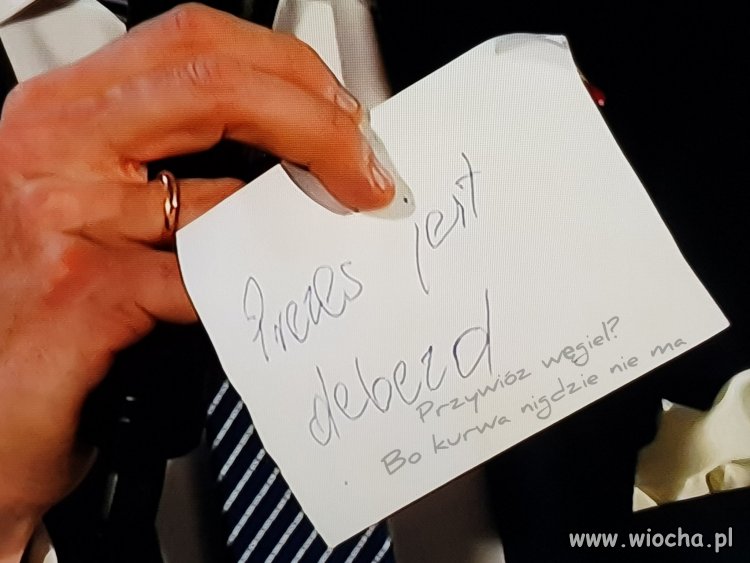 Prezes jest
debezd
Przywióz węgiel?
Bo kurwa nigdzie nie ma
www.wiocha.pl